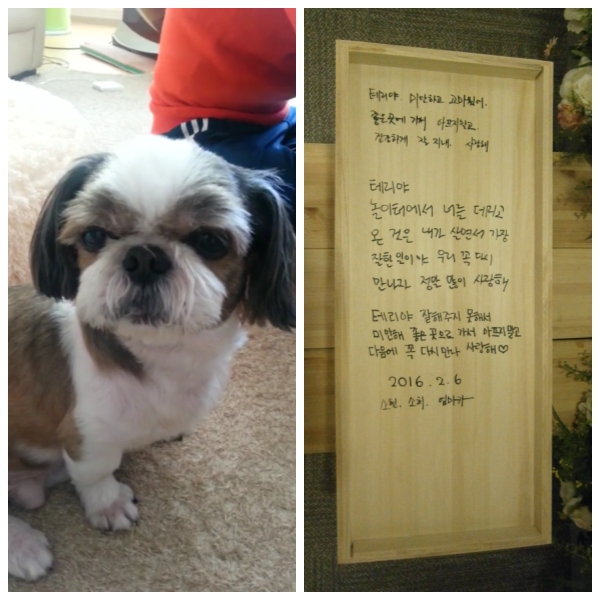 테리야. 미안하고 고마웠어.
좋은곳에 가서 아프지말고
건강하게 잘 지내. 사랑해
테리야
놀이터에서 너를 데리고
온 것은 내가 살면서 가장
잘한일이야 우리 꼭 다시
만나자 정말 많이 사랑해
테리야 잘해주지 못해서
미안해 좋은 곳으로 가서 아프지말고
다음에 꼭 다시만나 사랑해♡
2016. 2. 6
소희. 엄마가